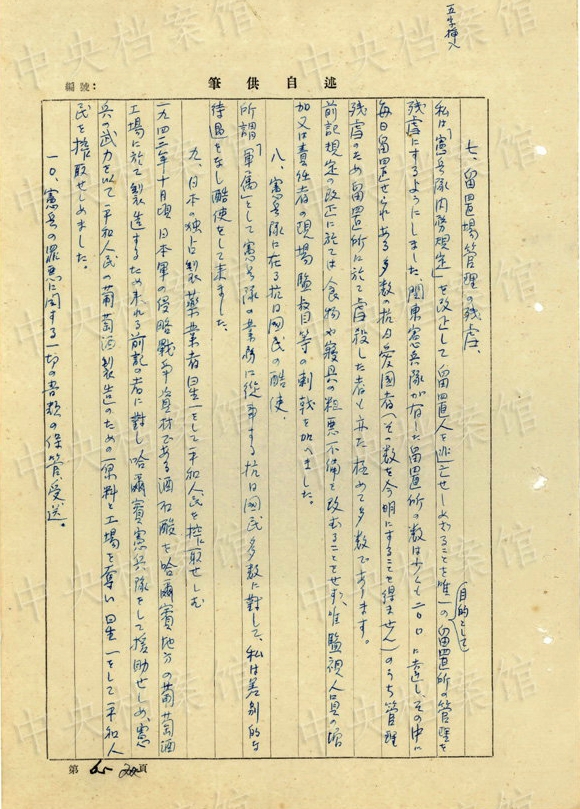 五字挿入
編號：
筆供自述
七、留置場管理の残虐、
私は「憲兵隊内務規定」を改正して留置人を逃亡せしめざることを唯一の目的として留置所の管理を
残虐にするようにしました。関東憲兵隊が有した留置所の数は少くも二〇〇に達し、その中に
毎日留置せられある多数の抗日愛国者（その数を今明にすることを得ません）のうち管理
残虐のため留置所に於て虐殺した者も亦極めて多数であります。
前記規定の改正に於ては食物や寝具の粗悪不備を改むることをせず、唯監視人員の増
加又は責任者の現場監督等の刺戟を加へました。
八、憲兵隊に在る抗日国民の酷使、
所謂「軍属」として憲兵隊の業務に従事する抗日国民多数に対して、私は差別的な
待遇をなし酷使をして来ました。
九、日本の独占製薬業者
をして平和人民を搾取せしむ
一九四三年十月頃日本軍の侵略戦争資材である酒石酸を哈爾賓地方の葡萄酒
工場に於て製造するため来れる前記の者に対し哈爾賓憲兵隊をして援助せしめ、憲
兵の武力を以て平和人民の葡萄酒製造のための原料と工場を奪い
をして平和人
民を搾取せしめました。
一〇、憲兵の罪悪に関する一切の書類の保管、受送。
第
頁
中央档案馆